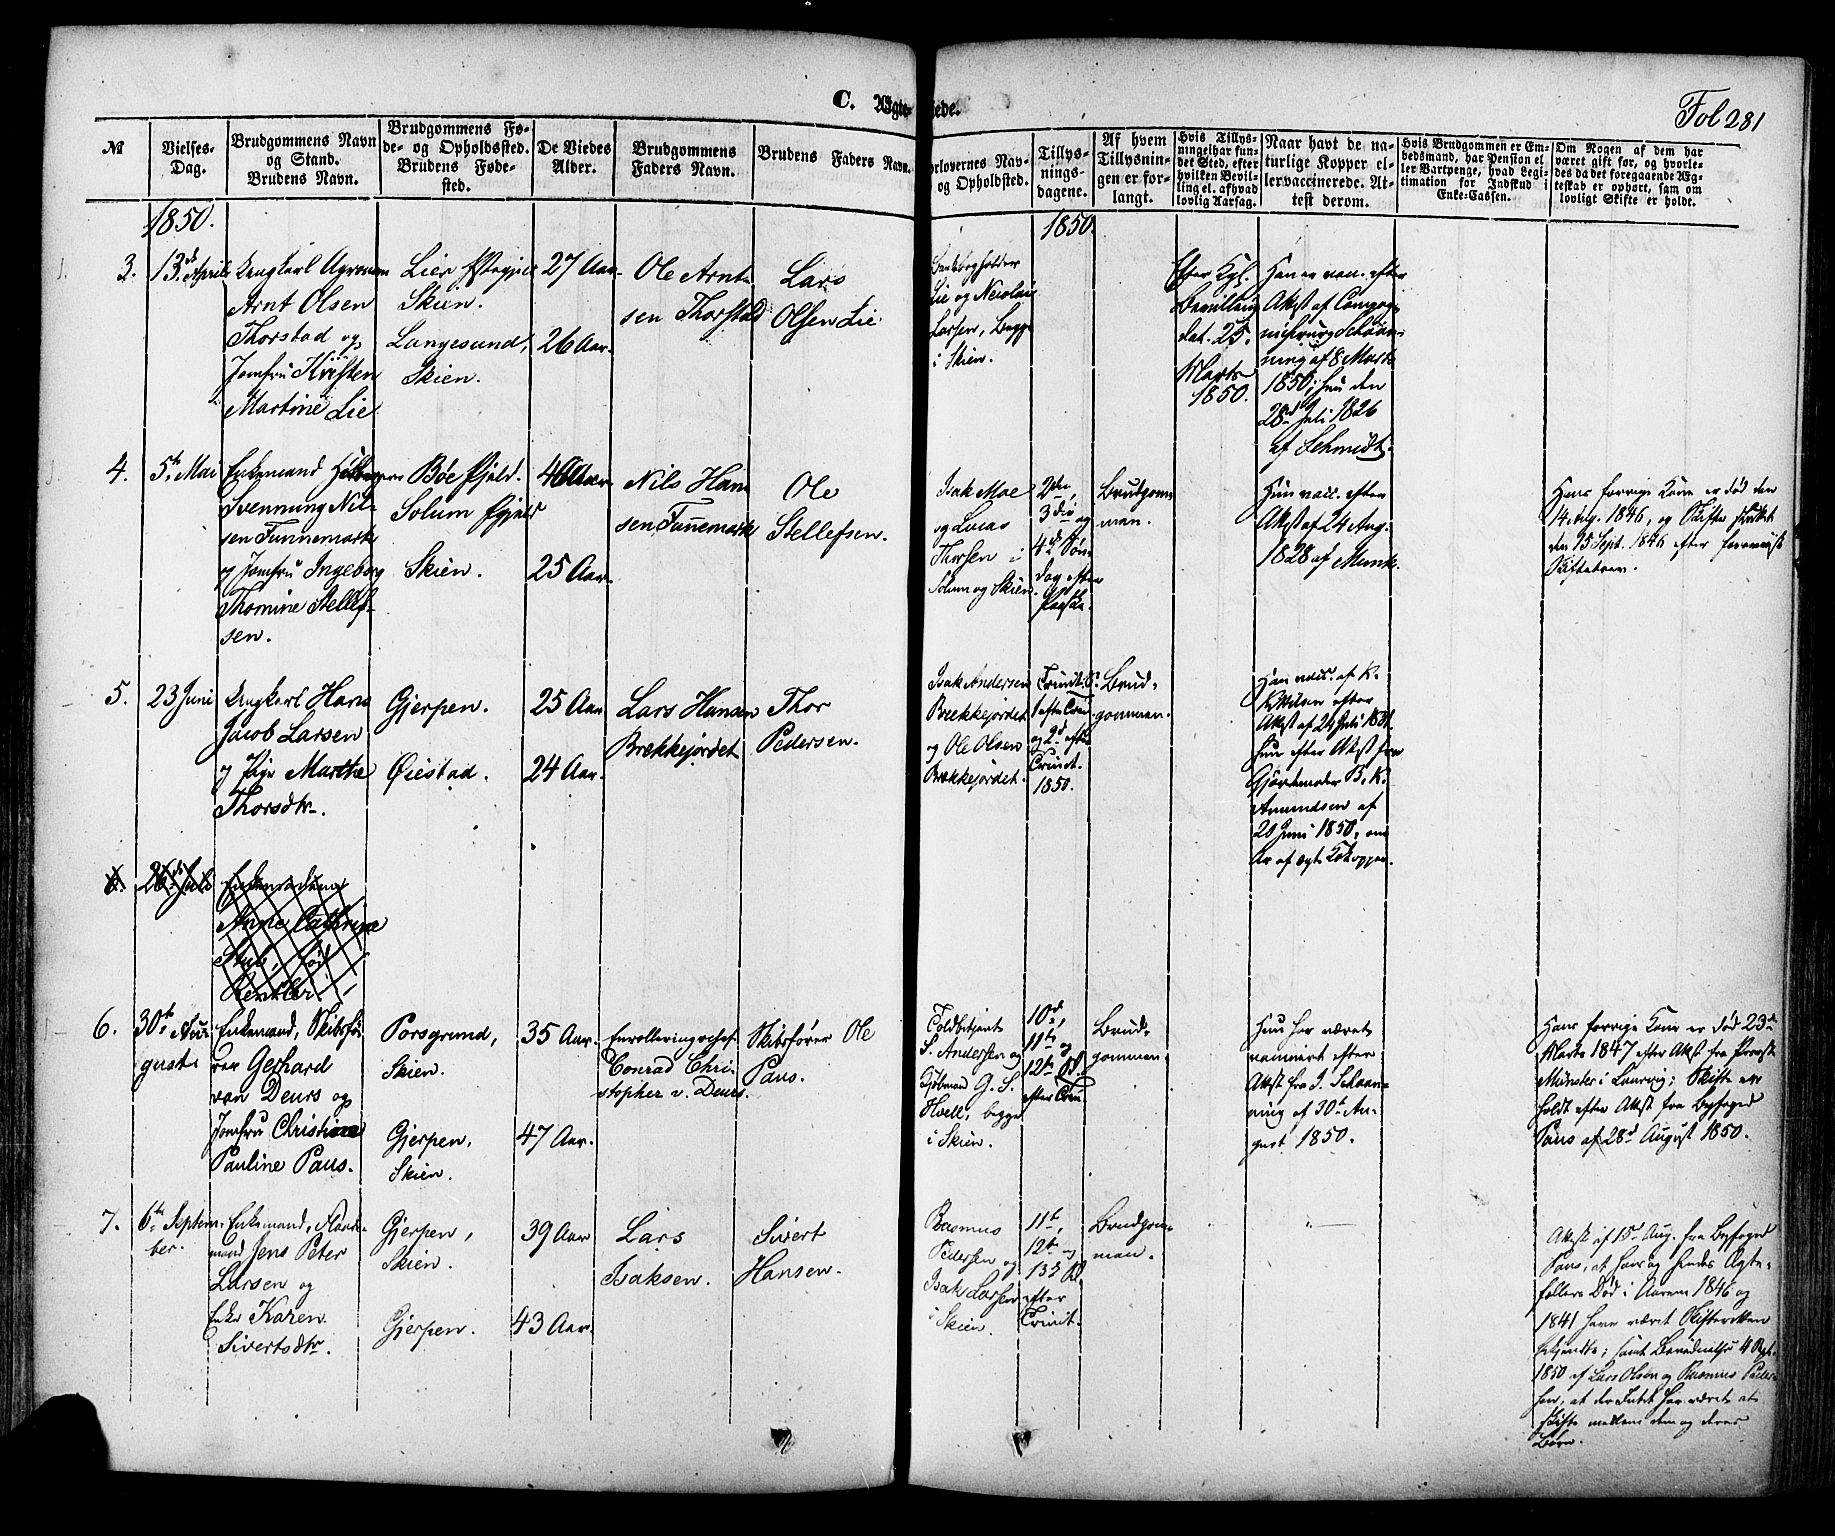 C. Ægte viede.
Fol 281
№
Vielses-
Dag.
Brudgommens Navn
og Stand.
Brudens Navn.
Brudgommens Fø-
de- og Opholdssted.
Brudens Føde-
sted.
De Viedes
Alder.
Brudgommens
Faders Navn.
Brudens Faders Navn.
orlovernes Nav-
og Opholdsted.
Tillys-
nings-
dagene.
Af hvem
Tillysnin-
gen er for-
langt.
Hvis Tillys-
ningel har fun-
det Sted, efter
hvilken Bevil-
ling el. af hvad
lovlig Aarsag.
Naar havt de na-
turlige Kopper el-
ler vaccinerede. At-
test derom.
Hvis Brudgommen er Em-
bedsmand, har Pension el
ler Vartpenge, hvad Legi-
timation for Indskud i
Enke-Cassen.
Om Nogen af dem har
været gift før, og hvorle-
des da det foregaaende Æg-
teskab er ophørt, sam om
lovligt Skifte er holdt.
1850.
1850.
3.
13de April
Ungkarl Agronom
Arnt Olsen
Thorstad og
Jomfru Kristen
Martine Lie
Lier
Skien.
Langesund,
Skien.
27 Aar.
26 Aar.
Ole Arnt-
sen Thorstad
Lars
Olsen Lie
Lie og Nicolai
Larsen, begge
i Skien.
Efter Kgl.
Bevilling
dat. 25.
Marts
1850.
Han er vac. efter
Attest af
ning af 8 Marts
1850; hun den
28de Juli 1826
af Schmidt.
4.
5te Mai
Enkemand
Svennung Nil-
sen Tunnemark
og Jomfru Ingeborg
Thomine Stellef-
sen.
Bøe Pgjeld.
Solum Pgjeld
Skien.
46 Aar.
25 Aar.
Nils Han
sen Tunnemark
Ole
Stellefsen.
Isak Moe
og Lucas
Thorsen i
Solum og Skien.
2den,
3die og
4de Søn-
dag efter
Paaske.
Brudgom-
man.
Hun vacc. efter
Attest af 24 Aug.
1828 af Munk.
Hans forrige Kone er død den
14 Aug. 1846, og Skifte
den 15 Sept. 1846 efter foreviist
Skiftebrev.
5.
23 Juni
Ungkarl Hans
Jacob Larsen
og Pige Marthe
Thorsdtr.
Gjerpen.
Øiestad.
25 Aar
24 Aar.
Lars Hansen
Brækkejordet
Thor
Pedersen.
Isak Andersen
Brækkejordet
og Ole Olsen
Brækkejordet.
Trinit. S.
1 efter Trin.
og 2d efter
Trinit.
1850.
Brud-
gommen.
Han vacc. af K.
Nilsen efter
Attest af 24 Juli
Hun efter Attest fra
Gjordemoder B. K.
Amundsen af
20 Juni 1850, om
Ar af ægte Kokopper.
6.
26de Juli
Enkemadame
Anne Cathrine
Stub, fød
6.
30te Au-
gust
Enkemand, Skibsfø-
rer Gerhard
van Deurs og
Jomfru Christiane
Pauline Paus.
Porsgrund,
Skien.
Gjerpen,
Skien.
35 Aar.
47 Aar.
Enrolleringschef
Conrad Chri-
stopher v. Deurs.
Skibsfører Ole
Paus.
Toldbetjent
S. Andersen og
Kjøbmand G. S.
Hoell, begge
i Skien.
10de,
11te og
12te S.
efter Trin.
Brud-
gommen.
Hun har været
vaccineret efter
Attest fra J. Schaan-
ning af 30te Au-
gust 1850.
Hans forrige Kone er død 23de
Marts 1847 efter Attest fra Provst
Münster i Laurvig; Skifte er
holdt efter Attest fra Byfoged
Paus af 28de August 1850.
7.
6te Septem-
ber.
Enkemand,
mand Jens Peter
Larsen og
Enke Karen
Sivertsdtr.
Gjerpen,
Skien.
Gjerpen.
39 Aar
43 Aar.
Lars
Isaksen.
Sivert
Hansen.
Rasmus
Pedersen og
Isak Larsen
i Skien.
11te,
12te og
13de S.
efter
Trinit.
Brudgom-
man.
Attest af 15de Aug. fra Byfoged
Paus, at hans og hendes Ægte-
fellers Død i Aarene 1846 og
1841 have været Skifteretten
bekjendte; samt Bevidnelse 4 Sept.
1850 af Lars Olsen og Rasmus Peder-
sen, at der Intet har været at
skifte mellem dem og deres
Børn.